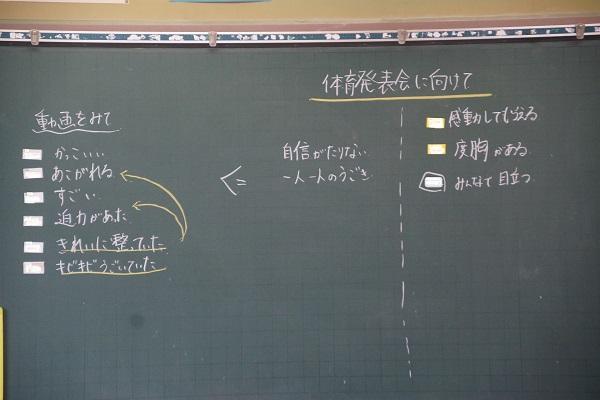 体育発表会に向けて
動画をみて
かっこいい
あこがれる
すごい
迫力があった
きれいに整っていた
キビキビうごいていた
<=
自信がたりない
一人一人のうごき
感動してもらえる
度胸がある
みんなで目立つ